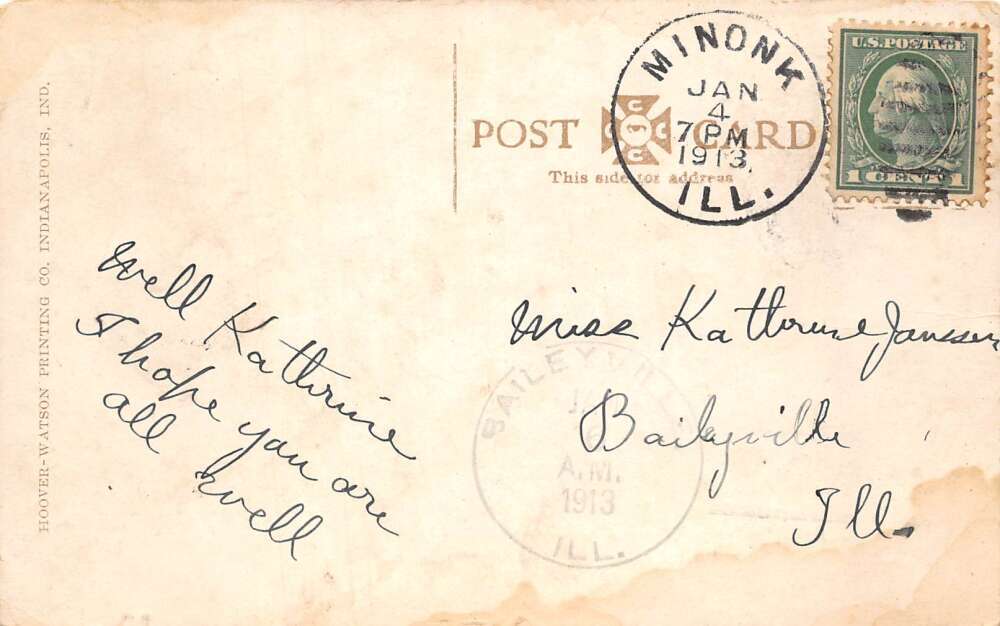 HOOVER-WATSON PRINTING CO. INDIANAPOLIS, IND.
POST CARD
This side for address
MINONK
JAN
4
7 PM
1913
ILL.
U.S. POSTAGE
1 CENT 1
well Katherine
I hope you are
all well
Miss Katherine Janssen
Baileyville
Ill.
BAILEYVILLE
A.M.
1913
ILL.